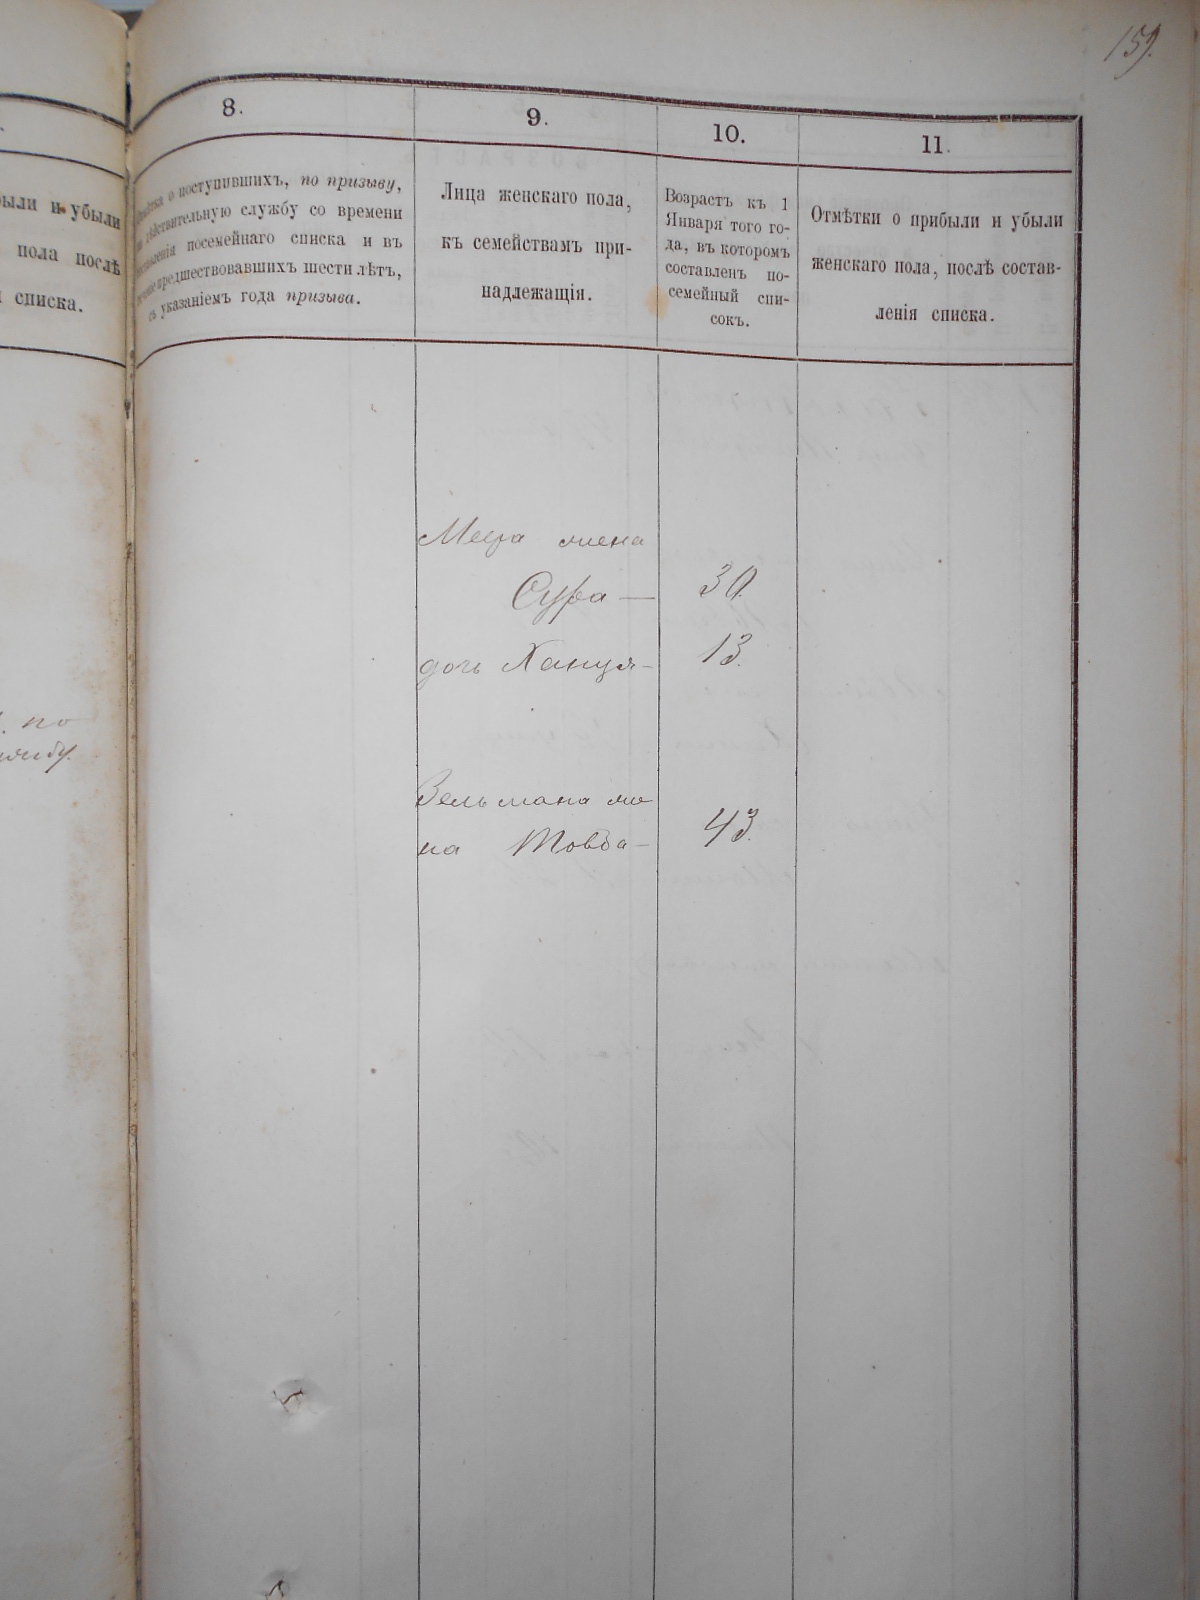 159.
были и убыли
пола послѣ
списка.
по
8.
о поступившихъ, по призыву,
дѣйствительную службу со времени
составленія посемейнаго списка и въ
теченіе предшествовавшихъ шести лѣтъ,
съ указаніемъ года призыва.
9.
Лица женскаго пола,
къ семействамъ при-
надлежащія.
10.
Возрастъ къ 1
Января того го-
да, въ которомъ
составленъ по-
семейный спи-
сокъ.
11.
Отмѣтки о прибыли и убыли
женскаго пола, послѣ состав-
ленія списка.
жена
Сура — 30.
дочь Ханця — 13.
Зельмана же
на Товба — 43.